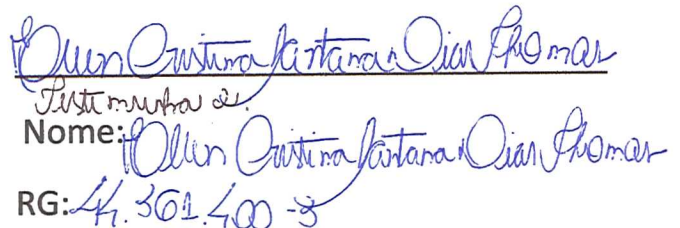 Ellen Cristina Santana Dias Thomas
Testemunha 2:
Nome: Ellen Cristina Santana Dias Thomas
RG: 44.361.400-3